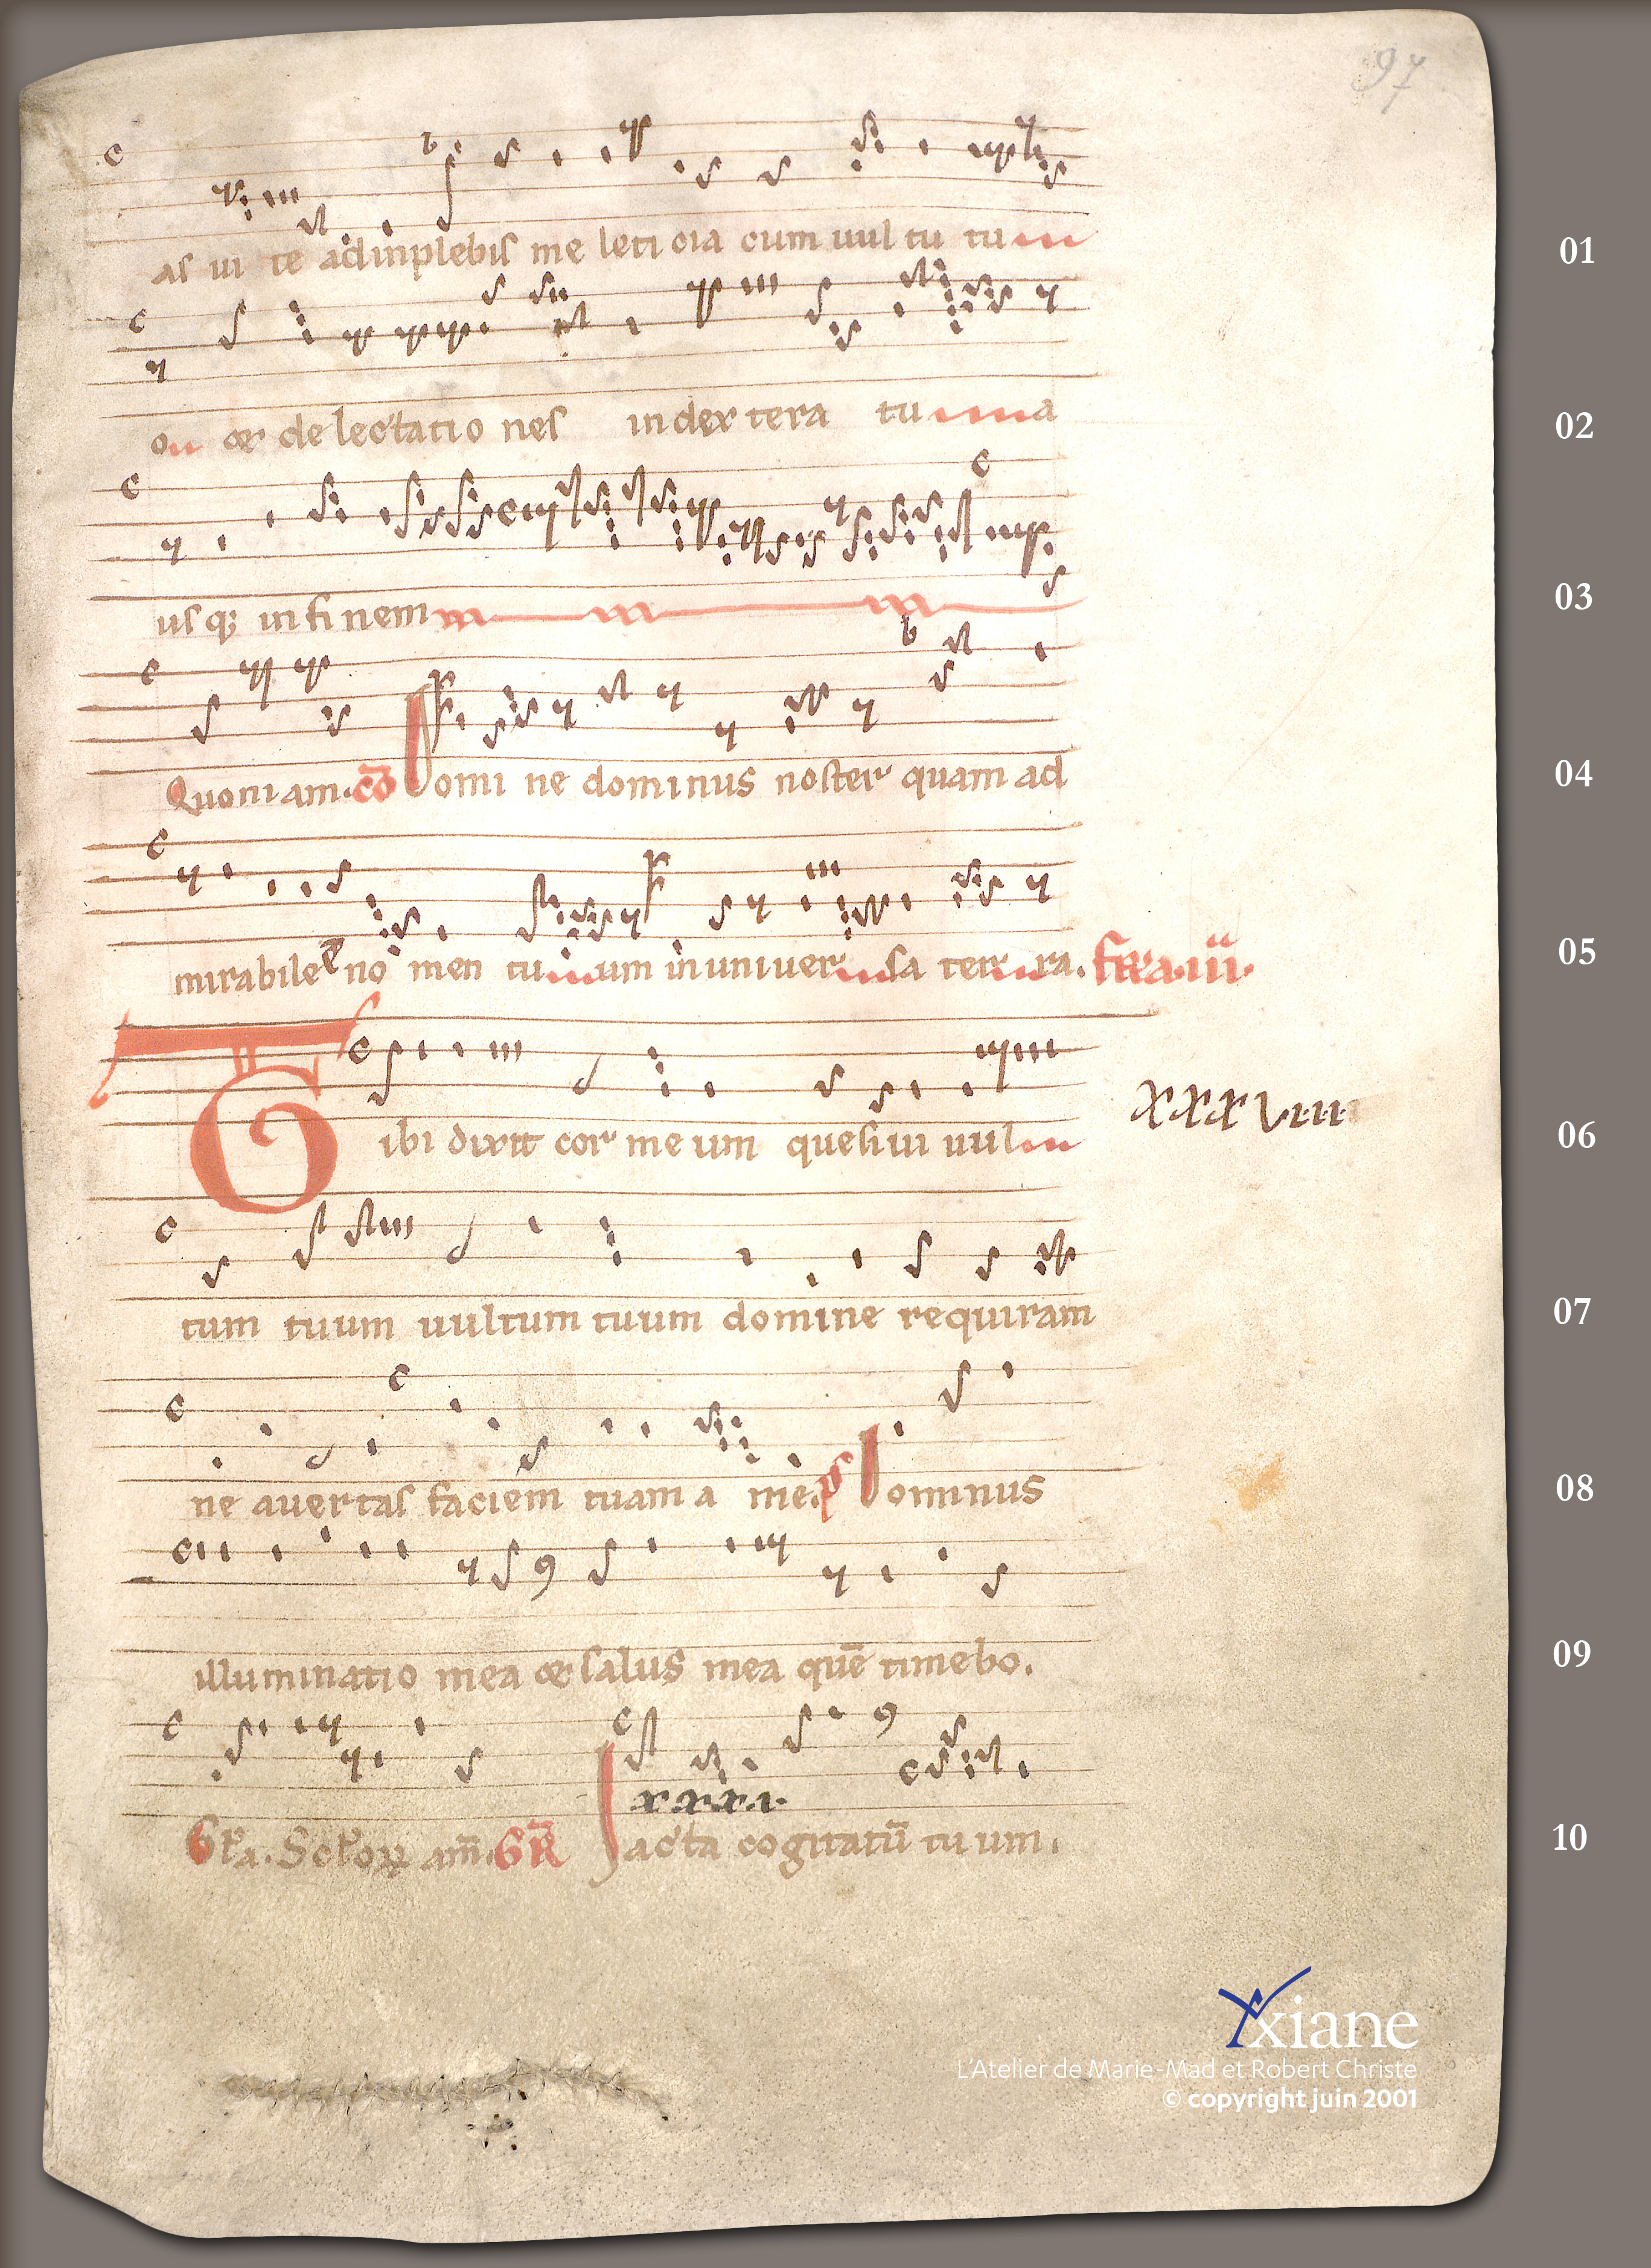 97
as ui te adinplebis me leti cia cum uul tu tu
01
on et de lectatio nes in dex tera tu a
02
us q; in fi nem
03
Quoni am. co Domi ne dominus noster quam ad
04
mirabile e no men tu um in uniuer sa ter ra. fr̄a.iii.
05
Tibi dixit cor me um quesiui uul
xxxviiii
06
tum tuum uultum tuum domine requiram
07
ne auertas faciem tuam a me. ps Dominus
08
illuminatio mea et salus mea quē timebo.
09
xxxi.
Gła. Scłorꝝ am̄. GR̄ Iacta cogitatū tu um.
10
Axiane
L'Atelier de Marie-Mad et Robert Christe
© copyright juin 2001